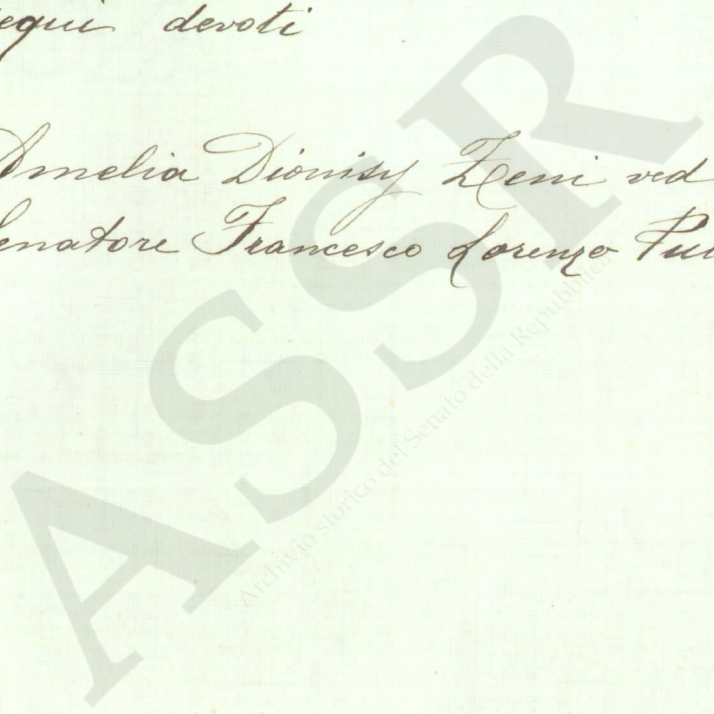 equi devoti
Amelia Dionisy Zeni ved
Senatore Francesco Lorenzo
ASSR
Archivio storico del Senato della Repubblica